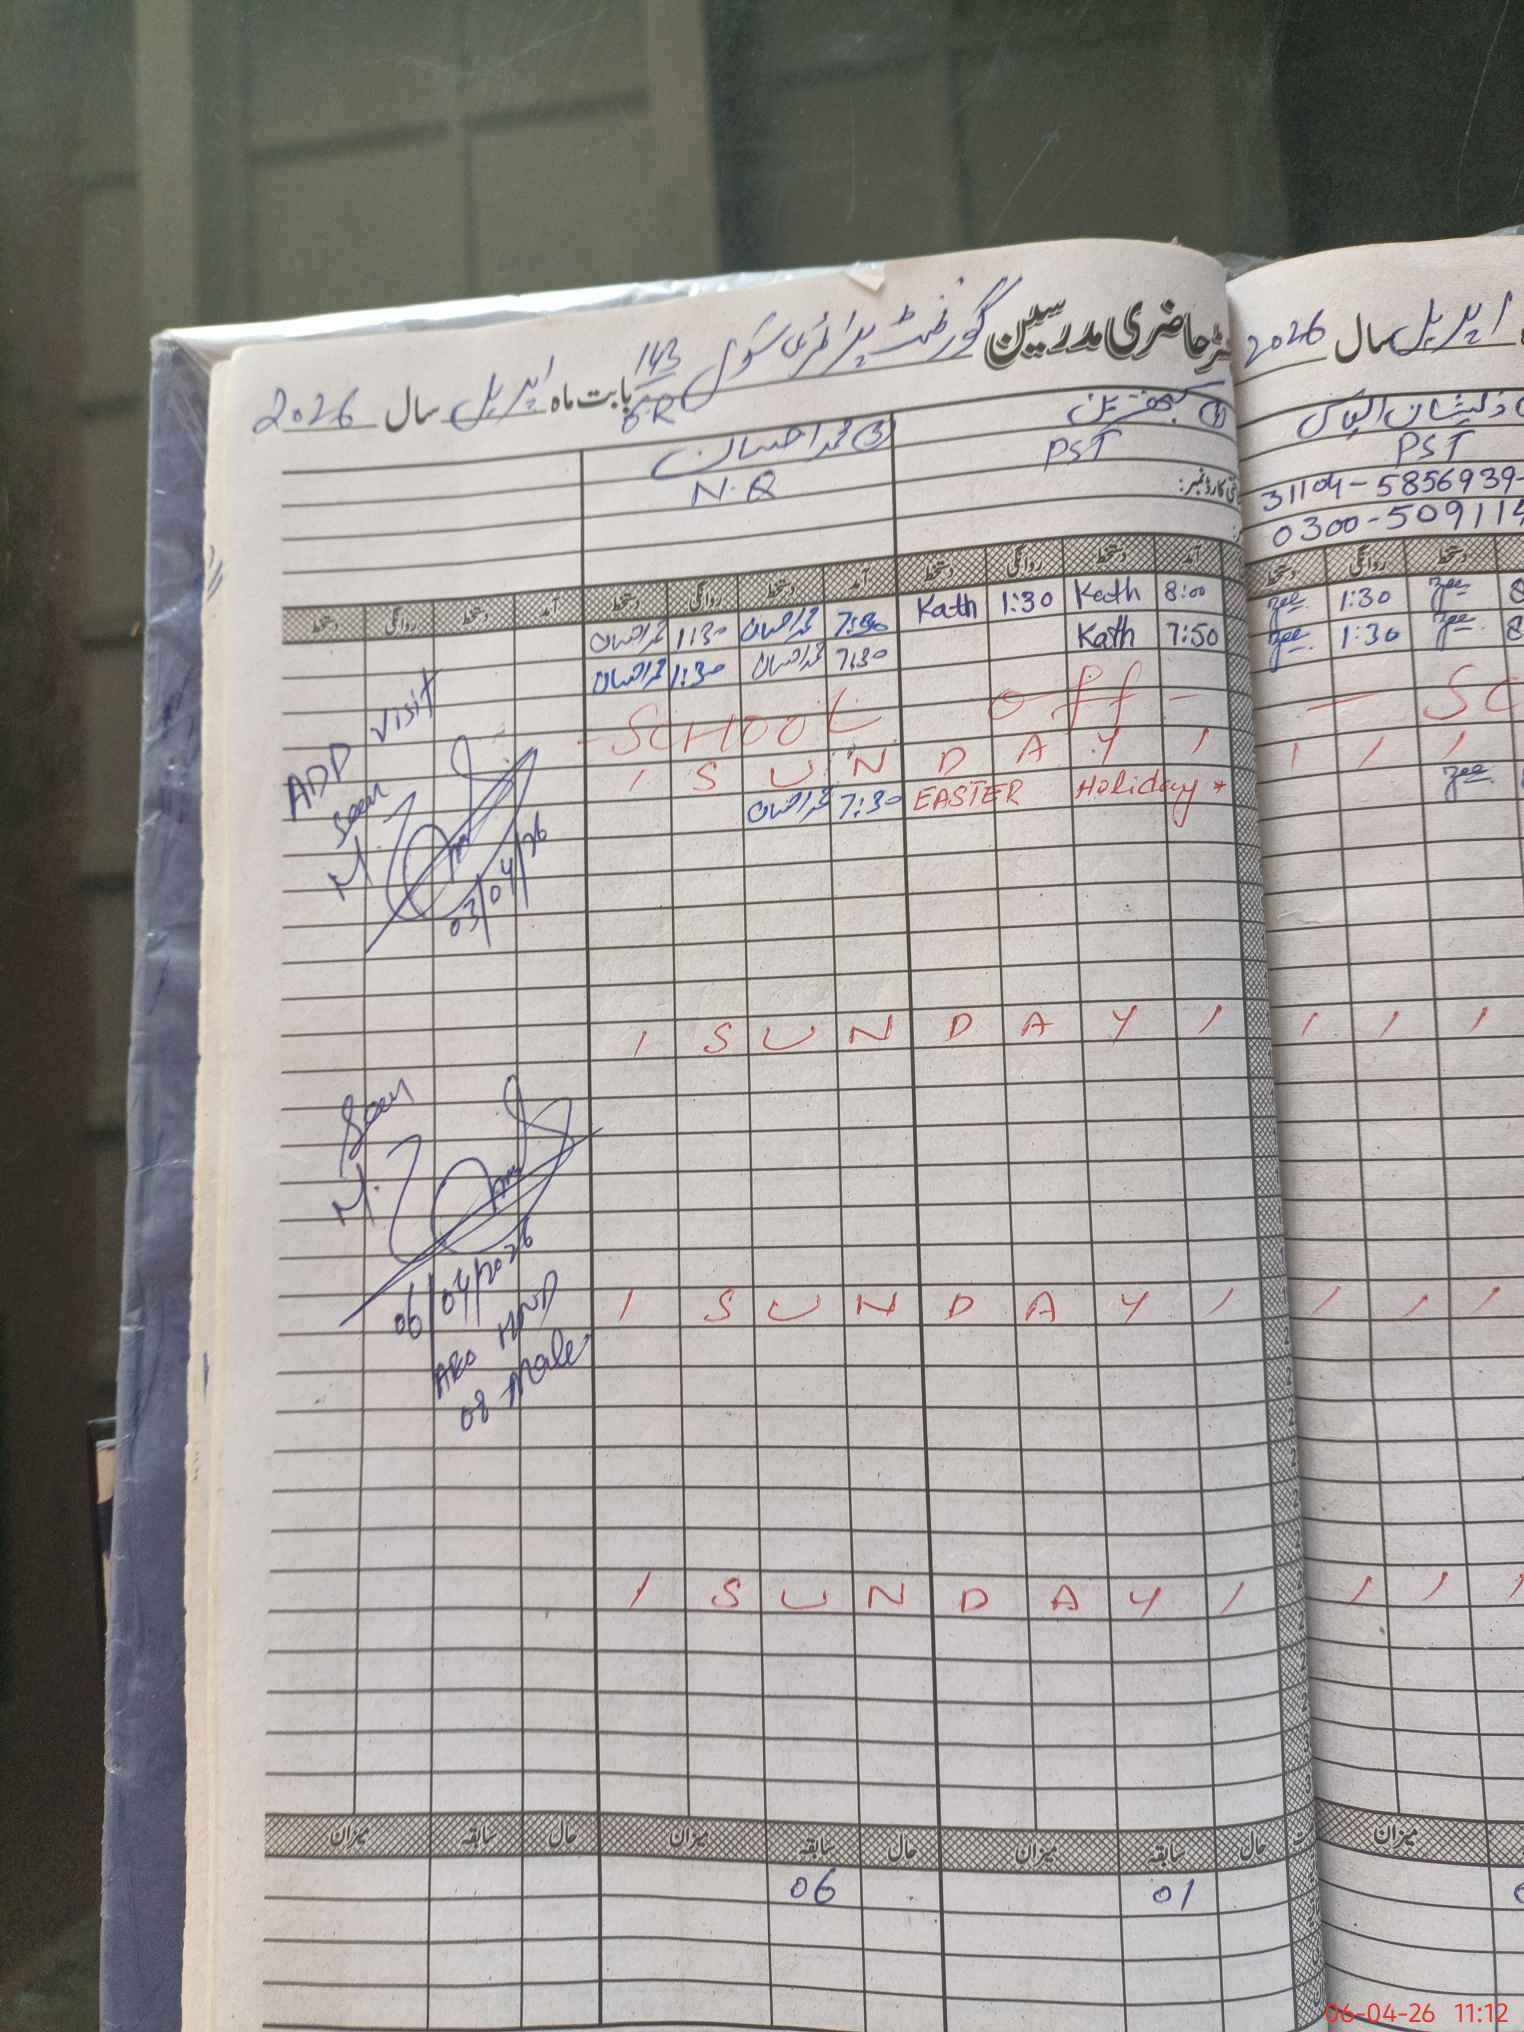 رجسٹر حاضری مدرسین گورنمنٹ پرائمری سکول 143/6R بابت ماہ اپریل سال 2026
اپریل سال 2026
③ محمد احسان
PST
N.Q
PST
31104-5856939-
0300-509114
آمد دستخط روانگی دستخط آمد دستخط روانگی دستخط آمد دستخط روانگی دستخط
دستخط روانگی دستخط
8:00 Kath 1:30 Kath 7:30 محمد احسان 1:30 محمد احسان
Zee 1:30 Zee 8
7:50 Kath 7:30 محمد احسان 1:30 محمد احسان
Zee 1:30 Zee 8
- SCHOOL off -
- SC
1 SUNDAY 1 1 1 1
محمد احسان 7:30 EASTER Holiday *
Zee
ADD visit
seen
M.
03/04/26
1 SUNDAY 1 1 1 1
Seen
M.
06/04/2026
1 SUNDAY 1 1 1 1
08 Male
1 SUNDAY 1 1 1 1
حال سابقہ میزان حال سابقہ میزان حال سابقہ میزان
میزان
06 01
06-04-26 11:12